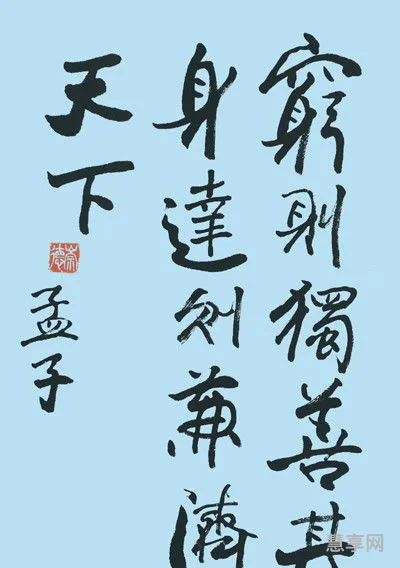 窮則獨善其
身達則兼濟
天下
崇德
孟子
慧享网